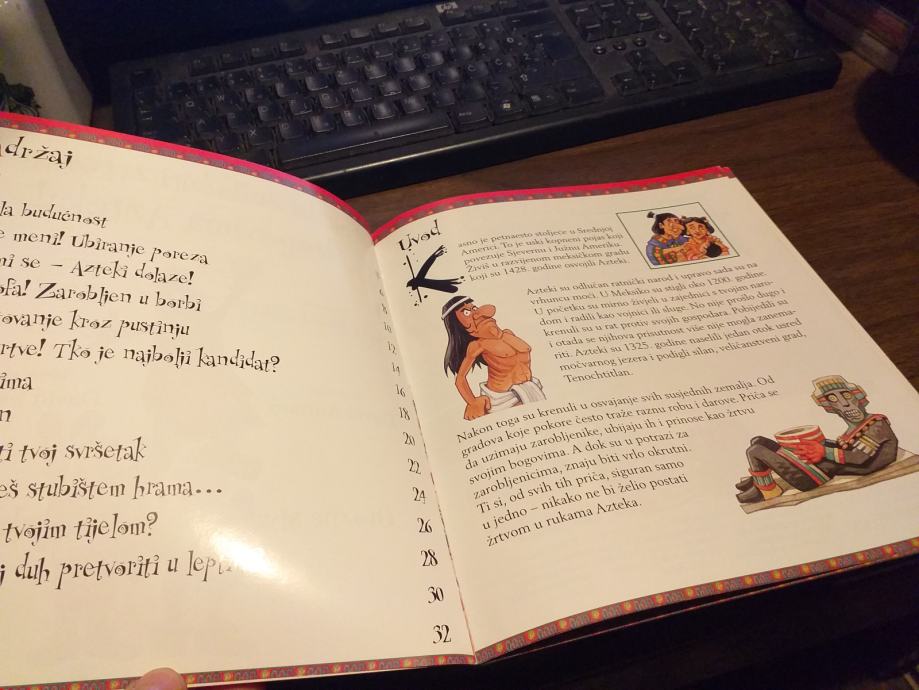 držaj
la budućnost
e meni! Ubiranje poreza
ni se – Azteki dolaze!
ofa! Zarobljen u borbi
ovanje kroz pustinju
rtve! Tko je najbolji kandidat?
ima
n
ti tvoj svršetak
eš stubištem hrama...
tvojim tijelom?
j duh pretvoriti u lepti
10
12
14
16
18
20
22
24
26
28
30
32
Uvod
K
asno je petnaesto stoljeće u Srednjoj
Americi. To je uski kopneni pojas koji
povezuje Sjevernu i Južnu Ameriku.
Živiš u razvijenom meksičkom gradu
koji su 1428. godine osvojili Azteki.
Azteki su odlučan ratnički narod i upravo sada su na
vrhuncu moći. U Meksiko su stigli oko 1200. godine.
U početku su mirno živjeli u zajednici s tvojim naro-
dom i radili kao vojnici ili sluge. No nije prošlo dugo i
krenuli su u rat protiv svojih gospodara. Pobijedili su
i otada se njihova prisutnost više nije mogla zanema-
riti. Azteki su 1325. godine naselili jedan otok usred
močvarnog jezera i podigli silan, veličanstveni grad,
Tenochtitlan.
Nakon toga su krenuli u osvajanje svih susjednih zemalja. Od
gradova koje pokore često traže raznu robu i darove. Priča se
da uzimaju zarobljenike, ubijaju ih i prinose kao žrtvu
svojim bogovima. A dok su u potrazi za
zarobljenicima, znaju biti vrlo okrutni.
Ti si, od svih tih priča, siguran samo
u jedno – nikako ne bi želio postati
žrtvom u rukama Azteka.